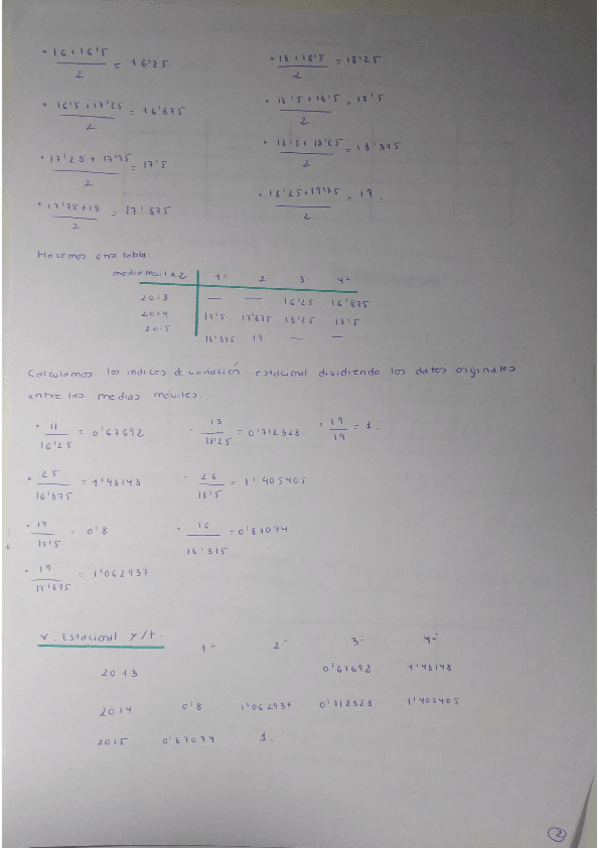 • 16+16'5 / 2 = 16'25
• 16'5+17'25 / 2 = 16'875
• 17'25+17'75 / 2 = 17'5
• 17'75+18 / 2 = 17'875
• 18+18'5 / 2 = 18'25
• 18'5+18'5 / 2 = 18'5
• 18'5+18'25 / 2 = 18'375
• 18'25+19'75 / 2 = 19.
Hacemos otra tabla:
media movil x 2 1º 2 3º 4º
2013 — — 16'25 16'875
2014 17'5 17'875 18'25 18'5
2015 18'375 19 — —
Calculamos los indices de variación estacional dividiendo los datos originales
entre las medias móviles.
• 11 / 16'25 = 0'67692
• 25 / 16'875 = 1'48148
• 14 / 17'5 = 0'8
• 19 / 17'875 = 1'062937
• 13 / 18'25 = 0'712328
• 26 / 18'5 = 1'405405
• 16 / 18'375 = 0'87074
• 19 / 19 = 1.
V. Estacional Y/t. 1º 2º 3º 4º
2013 0'67692 1'48148
2014 0'8 1'062937 0'712328 1'405405
2015 0'87074 1.
2